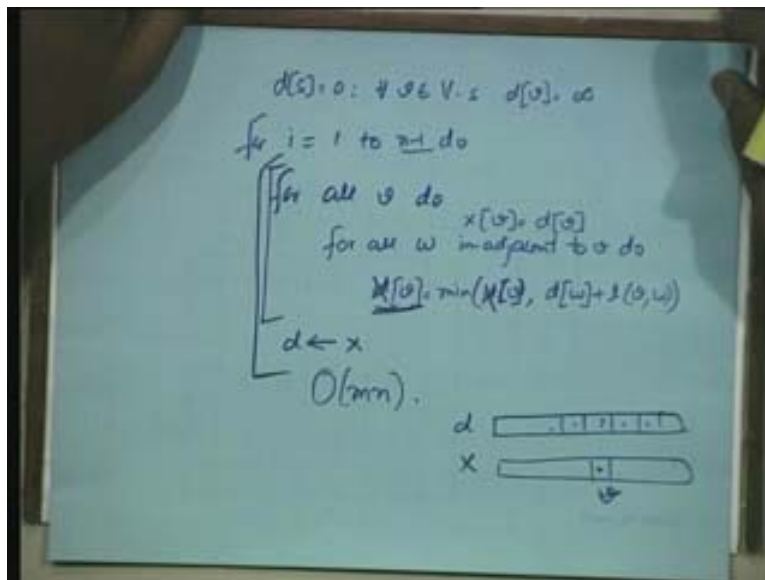 d[s] = 0 ; ∀ v ∈ V-s d[v] = ∞
for i = 1 to n-1 do
for all v do
x[v] = d[v]
for all w inadjacent to v do
x[v] = min(x[v], d[w] + l(v,w))
d ← x
O(mn).
d
x
v